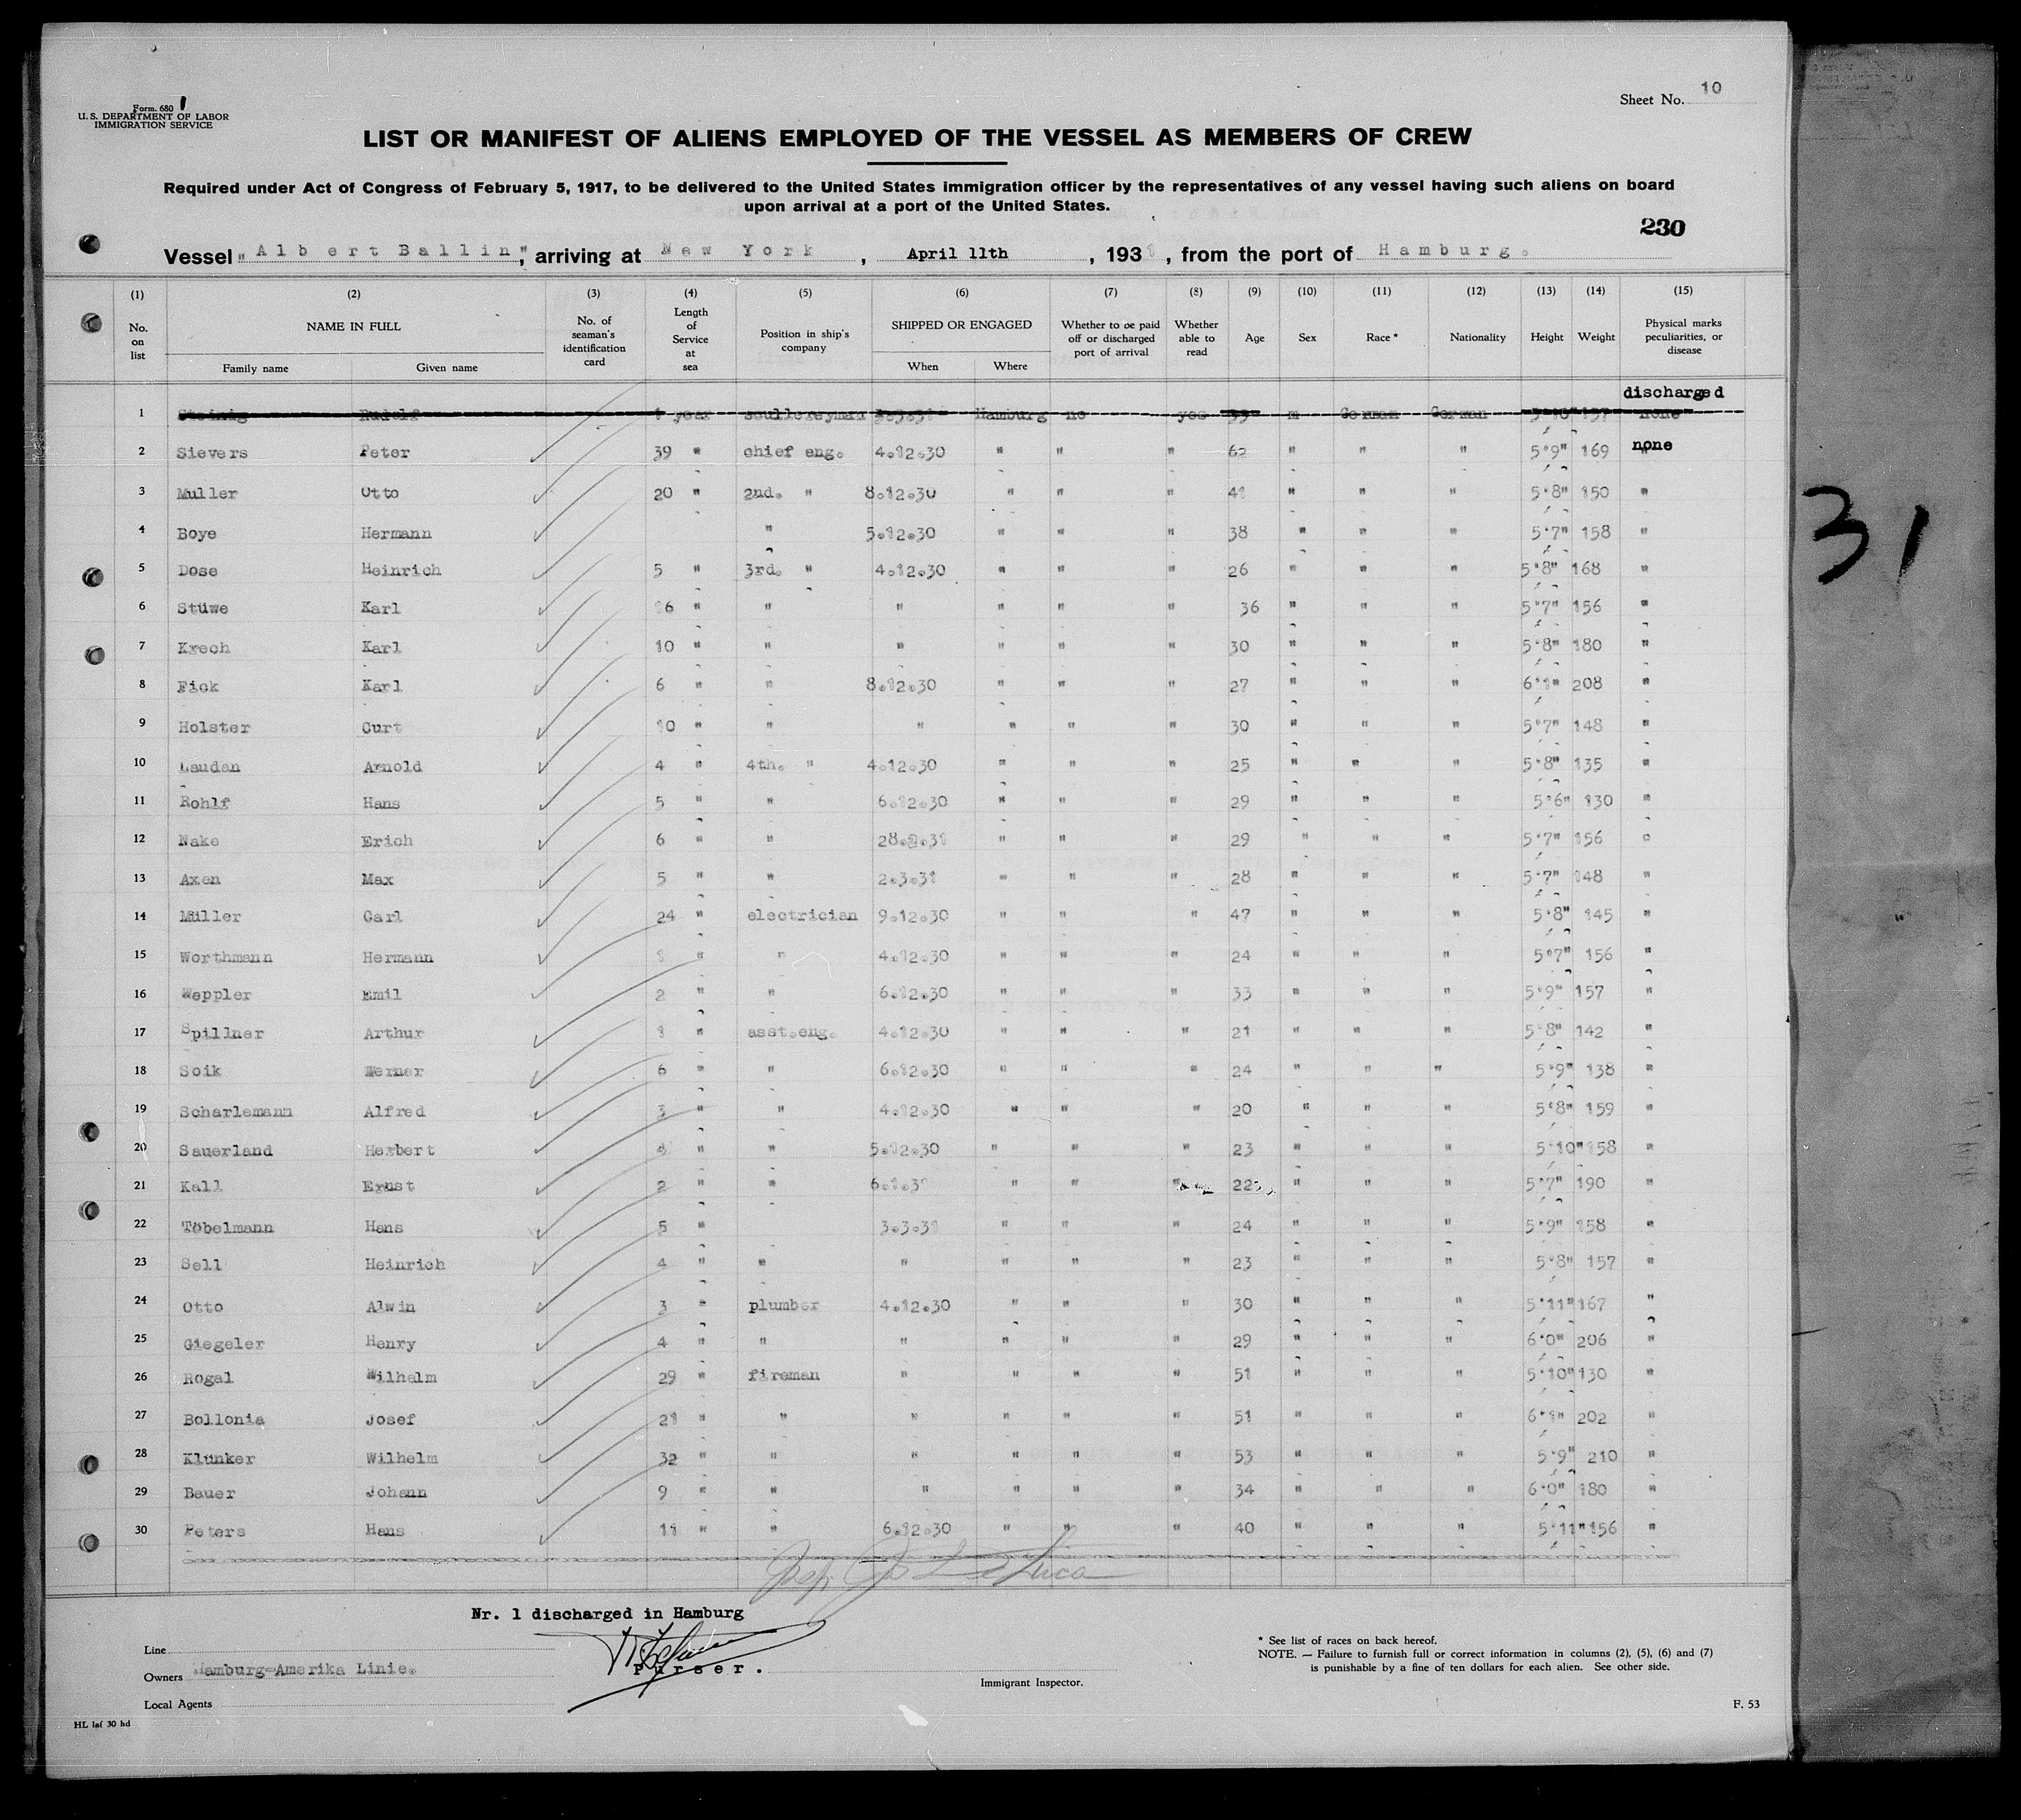 Form. 680 1
U. S. DEPARTMENT OF LABOR
IMMIGRATION SERVICE
Sheet No. 10
LIST OR MANIFEST OF ALIENS EMPLOYED OF THE VESSEL AS MEMBERS OF CREW
Required under Act of Congress of February 5, 1917, to be delivered to the United States immigration officer by the representatives of any vessel having such aliens on board
upon arrival at a port of the United States.
230
Vessel "Albert Ballin", arriving at New York, April 11th, 1931, from the port of Hamburg.
(1) (2) (3) (4) (5) (6) (7) (8) (9) (10) (11) (12) (13) (14) (15)
No. on list NAME IN FULL Family name Given name No. of seaman's identification card Length of Service at sea Position in ship's company SHIPPED OR ENGAGED When Where Whether to be paid off or discharged port of arrival Whether able to read Age Sex Race * Nationality Height Weight Physical marks peculiarities, or disease
discharged
1 Steinig Rudolf 1 year 3.3.31 Hamburg no yes m German German none
2 Sievers Peter 39 " chief eng. 4.12.30 " " " 62 " " " 5'9" 169 none
3 Muller Otto 20 " 2nd. " 8.12.30 " " " 41 " " " 5'8" 150 "
4 Boye Hermann " 5.12.30 " " " 38 " " " 5'7" 158 "
5 Dose Heinrich 5 " 3rd. " 4.12.30 " " " 26 " " " 5'8" 168 "
6 Stüwe Karl 16 " " " " " " 36 " " " 5'7" 156 "
7 Krech Karl 10 " " " " " " 30 " " " 5'8" 180 "
8 Fick Karl 6 " " 8.12.30 " " " 27 " " " 6'1" 208 "
9 Holster Curt 10 " " " " " " 30 " " " 5'7" 148 "
10 Laudan Arnold 4 " 4th. " 4.12.30 " " " 25 " " " 5'8" 135 "
11 Rohlf Hans 5 " " 6.12.30 " " " 29 " " " 5'6" 130 "
12 Nake Erich 6 " " 28.2.31 " " " 29 " " " 5'7" 156 "
13 Axen Max 5 " " 2.3.31 " " " 28 " " " 5'7" 148 "
14 Müller Carl 24 " electrician 9.12.30 " " " 47 " " " 5'8" 145 "
15 Worthmann Hermann 1 " " 4.12.30 " " " 24 " " " 5'7" 156 "
16 Weppler Emil 2 " " 6.12.30 " " " 33 " " " 5'9" 157 "
17 Spillner Arthur 1 " asst.eng. 4.12.30 " " " 21 " " " 5'8" 142 "
18 Soik Werner 6 " " 6.12.30 " " " 24 " " " 5'9" 138 "
19 Scharlemann Alfred 3 " " 4.12.30 " " " 20 " " " 5'8" 159 "
20 Sauerland Herbert " " 5.12.30 " " " 23 " " " 5'10" 158 "
21 Kall Ernst 2 " " 6.1.31 " " " 22 " " " 5'7" 190 "
22 Töbelmann Hans 5 " 3.3.31 " " " 24 " " " 5'9" 158 "
23 Sell Heinrich 4 " " " " " " 23 " " " 5'8" 157 "
24 Otto Alwin 3 " plumber 4.12.30 " " " 30 " " " 5'11" 167 "
25 Giegeler Henry 4 " " " " " " 29 " " " 6'0" 206 "
26 Rogal Wilhelm 29 " fireman " " " " 51 " " " 5'10" 130 "
27 Bollonia Josef 21 " " " " " " 51 " " " 6'1" 202 "
28 Klünker Wilhelm 32 " " " " " " 53 " " " 5'9" 210 "
29 Bauer Johann 9 " " " " " " 34 " " " 6'0" 180 "
30 Peters Hans 11 " " 6.12.30 " " " 40 " " " 5'11" 156 "
Nr. 1 discharged in Hamburg
Line
Owners Hamburg-Amerika Linie.
Local Agents
Purser.
Immigrant Inspector.
* See list of races on back hereof.
NOTE. — Failure to furnish full or correct information in columns (2), (5), (6) and (7)
is punishable by a fine of ten dollars for each alien. See other side.
HL laf 30 hd
F. 53
31